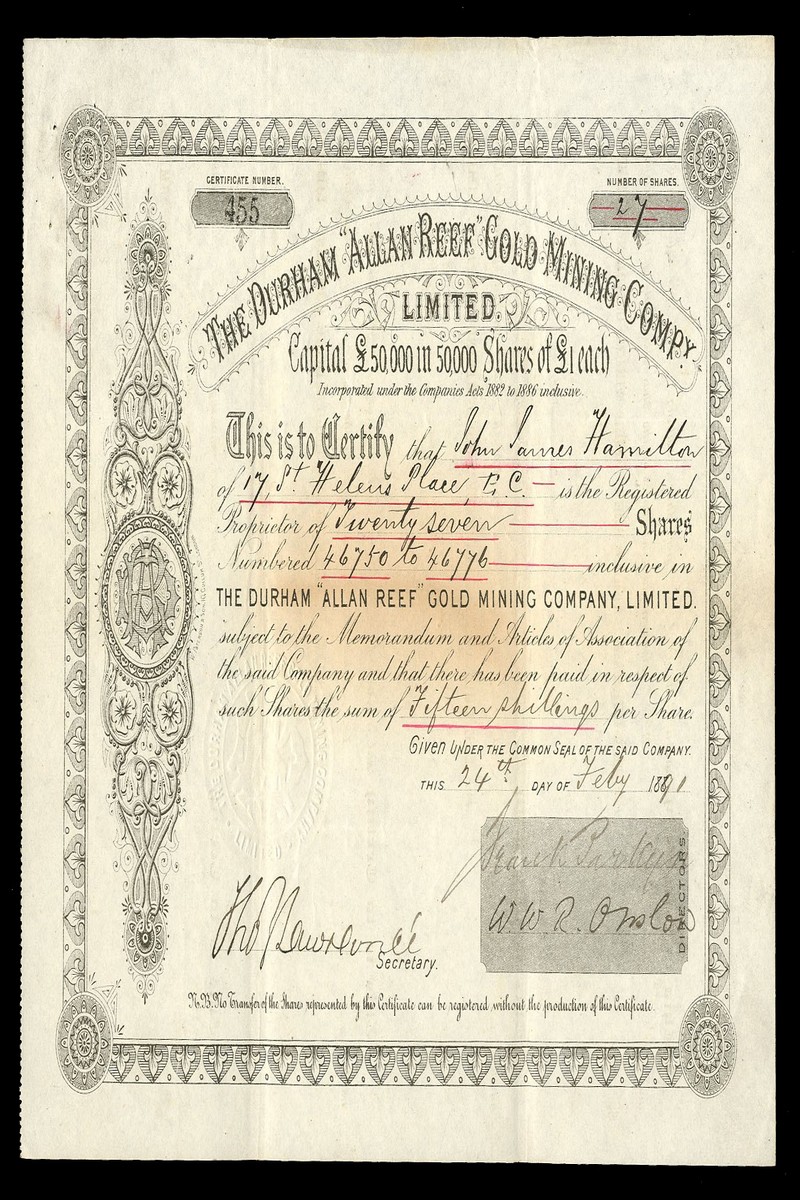 CERTIFICATE NUMBER.
455
NUMBER OF SHARES.
27
THE DURHAM "ALLAN REEF" GOLD MINING COMPY.
LIMITED.
Capital £50,000 in 50,000 Shares of £1 each
Incorporated under the Companies Acts 1882 to 1886 inclusive.
This is to Certify that John James Hamilton
of 17, St Helens Place, E.C. is the Registered
Proprietor of Twenty seven Shares
Numbered 46750 to 46776 inclusive in
THE DURHAM "ALLAN REEF" GOLD MINING COMPANY, LIMITED.
subject to the Memorandum and Articles of Association of
the said Company and that there has been paid in respect of
such Shares the sum of Fifteen shillings per Share.
Given UNDER THE COMMON SEAL OF THE SAID COMPANY.
THIS 24th DAY OF Feby 1890
Frank
W. W. R. Onslow
DIRECTORS
Secretary.
N.B. No Transfer of the Shares represented by this Certificate can be registered without the production of this Certificate.